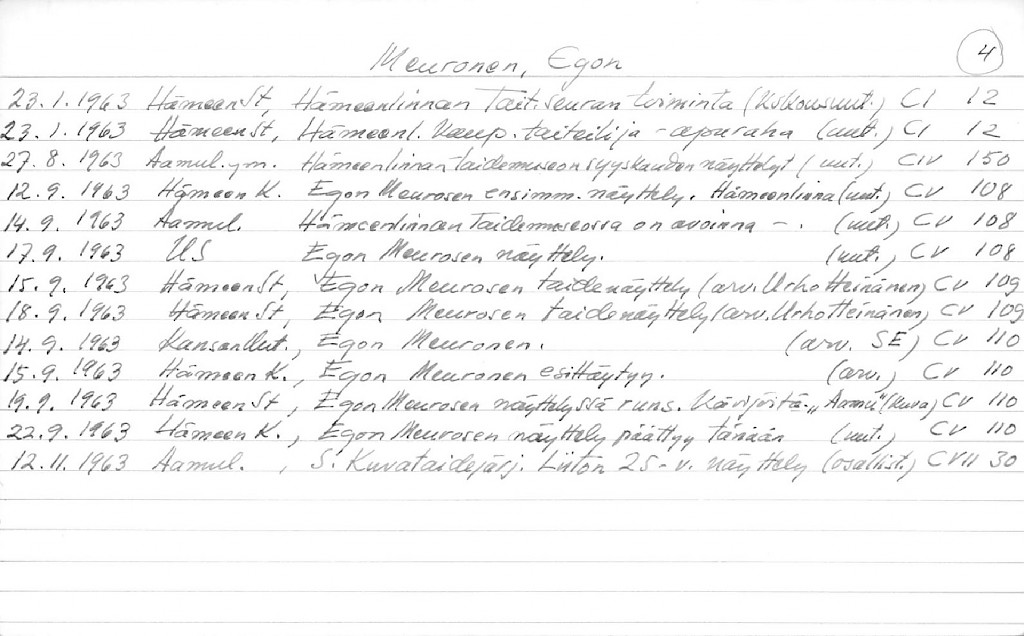 Meuronen, Egon
4
23.1.1963 HämeenSt, Hämeenlinnan Tait.seuran toiminta (kokousuut.) CI 12
23.1.1963 HämeenSt, Hämeenl. Kaup. taiteilija-apuraha (uut.) CI 12
27.8.1963 Aamul.ym. Hämeenlinnan taidemuseon syyskauden näyttelyt (uut.) CIV 150
12.9.1963 Hämeen K. Egon Meurosen ensimm. näyttely. Hämeenlinna (uut.) CV 108
14.9.1963 Aamul. Hämeenlinnan taidemuseossa on avoinna - . (uut.) CV 108
17.9.1963 US Egon Meurosen näyttely. (uut.) CV 108
15.9.1963 HämeenSt, Egon Meurosen taidenäyttely (arv. Urho Heinänen) CV 109
18.9.1963 HämeenSt, Egon Meurosen taidenäyttely (arv. Urho Heinänen) CV 109
14.9.1963 KansanUut., Egon Meuronen. (arv. SE) CV 110
15.9.1963 Hämeen K., Egon Meuronen esittäytyy. (arv.) CV 110
19.9.1963 HämeenSt, Egon Meurosen näyttelyssä runs. kävijöitä - (kuva) CV 110
22.9.1963 Hämeen K., Egon Meurosen näyttely päättyy tänään (uut.) CV 110
12.11.1963 Aamul., S. Kuvataidejärj. Liiton 25-v. näyttely (osallist.) CVII 30